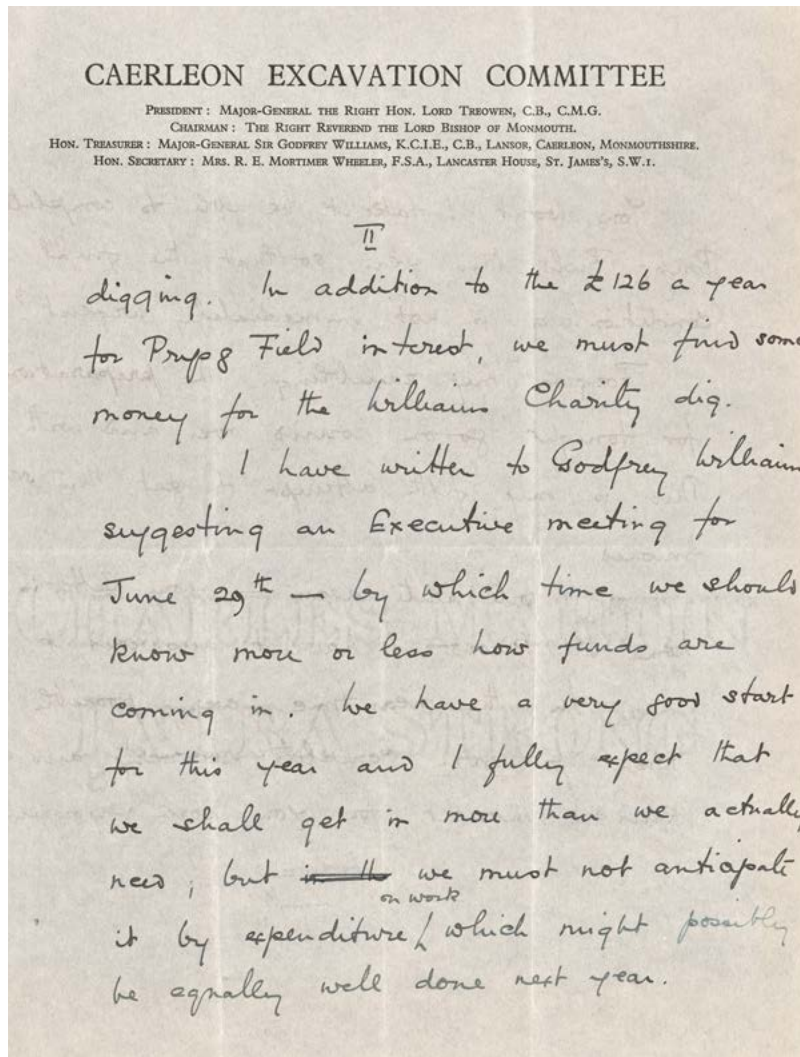 CAERLEON EXCAVATION COMMITTEE
PRESIDENT : MAJOR-GENERAL THE RIGHT HON. LORD TREOWEN, C.B., C.M.G.
CHAIRMAN : THE RIGHT REVEREND THE LORD BISHOP OF MONMOUTH.
HON. TREASURER : MAJOR-GENERAL SIR GODFREY WILLIAMS, K.C.I.E., C.B., LANSOR, CAERLEON, MONMOUTHSHIRE.
HON. SECRETARY : MRS. R. E. MORTIMER WHEELER, F.S.A., LANCASTER HOUSE, ST. JAMES'S, S.W.1.
II
digging. In addition to the £126 a year
for Field interest, we must find some
money for the Williams Charity dig.
I have written to Godfrey Williams
suggesting an Executive meeting for
June 29th — by which time we should
know more or less how funds are
coming in. We have a very good start
for this year and I fully expect that
we shall get in more than we actually
need ; but in th we must not anticipate
on work
it by expenditure / which might possibly
be equally well done next year.